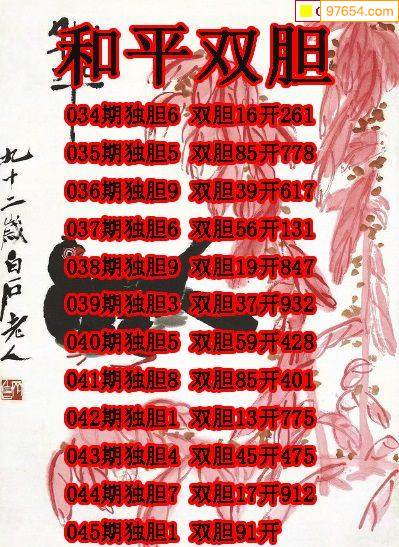 97654.com
和平双胆
034期独胆6 双胆16开261
035期独胆5 双胆85开778
036期独胆9 双胆39开617
037期独胆6 双胆56开131
038期独胆9 双胆19开847
039期独胆3 双胆37开932
040期独胆5 双胆59开428
041期独胆8 双胆85开401
042期独胆1 双胆13开775
043期独胆4 双胆45开475
044期独胆7 双胆17开912
045期独胆1 双胆91开
九十二岁白石老人